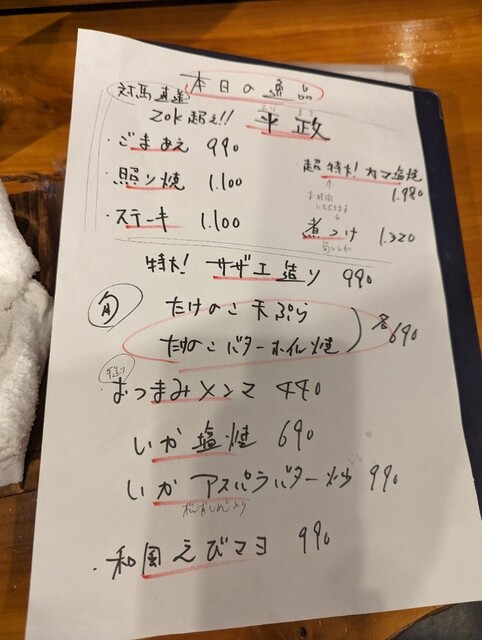 本日の逸品
対馬直送
20k超え!! 平政
・ごまあえ 990
・照り焼 1.100
・ステーキ 1.100
超特大!カマ塩焼
1.980
お時間
いただきます
煮つけ 1.320
特大! サザエ造り 990
旬 たけのこ天ぷら
たけのこバターホイル焼 各690
手造り
・おつまみメンマ 440
いか塩焼 690
いかアスパラバター炒め 990
・和風えびマヨ 990